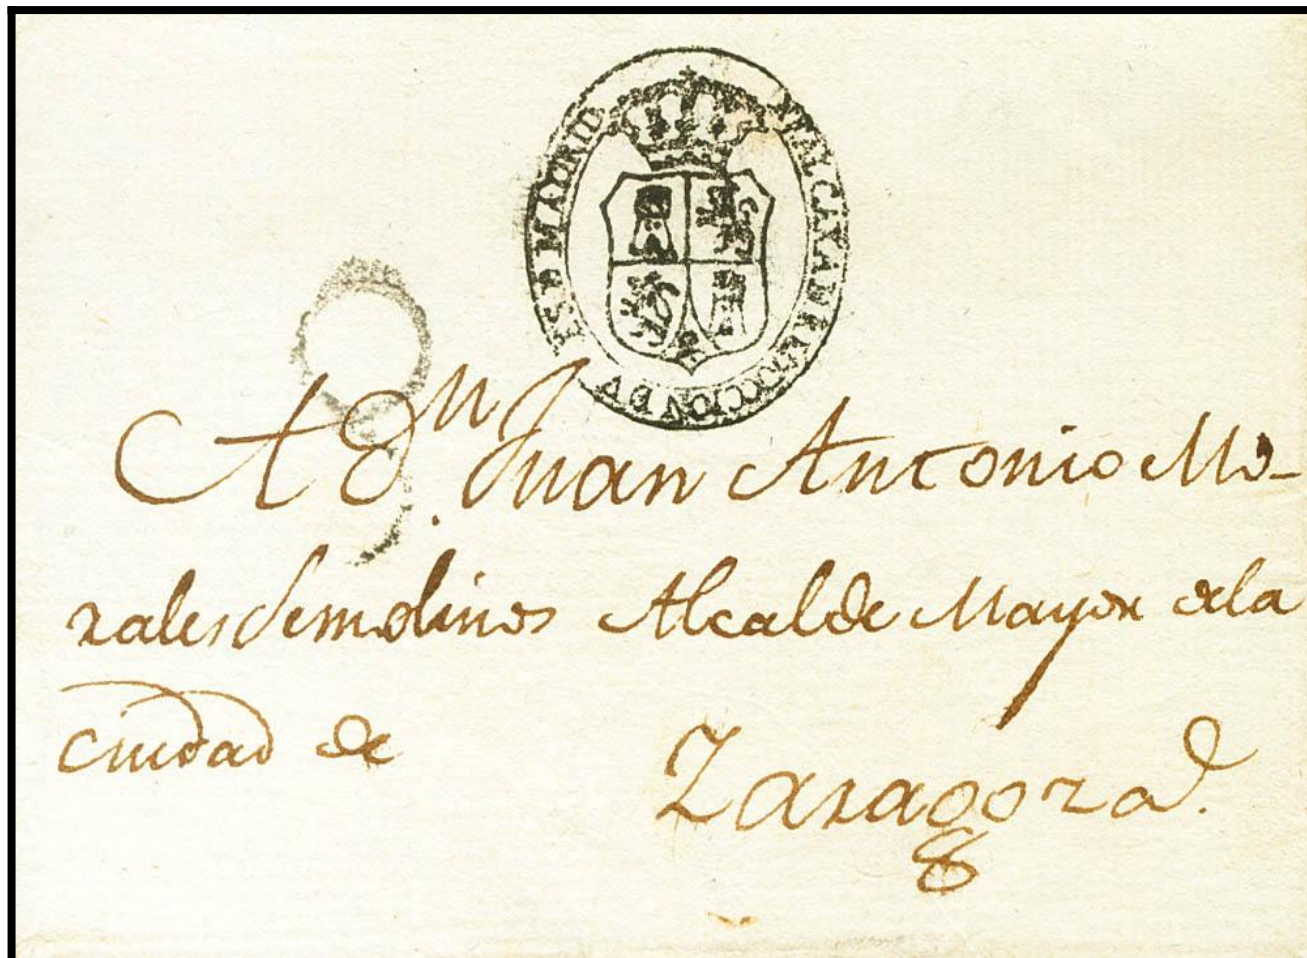 MADRID
A Dn. Juan Antonio Mo-
rales de molinos Alcalde Mayor de la
ciudad de
Zaragoza.